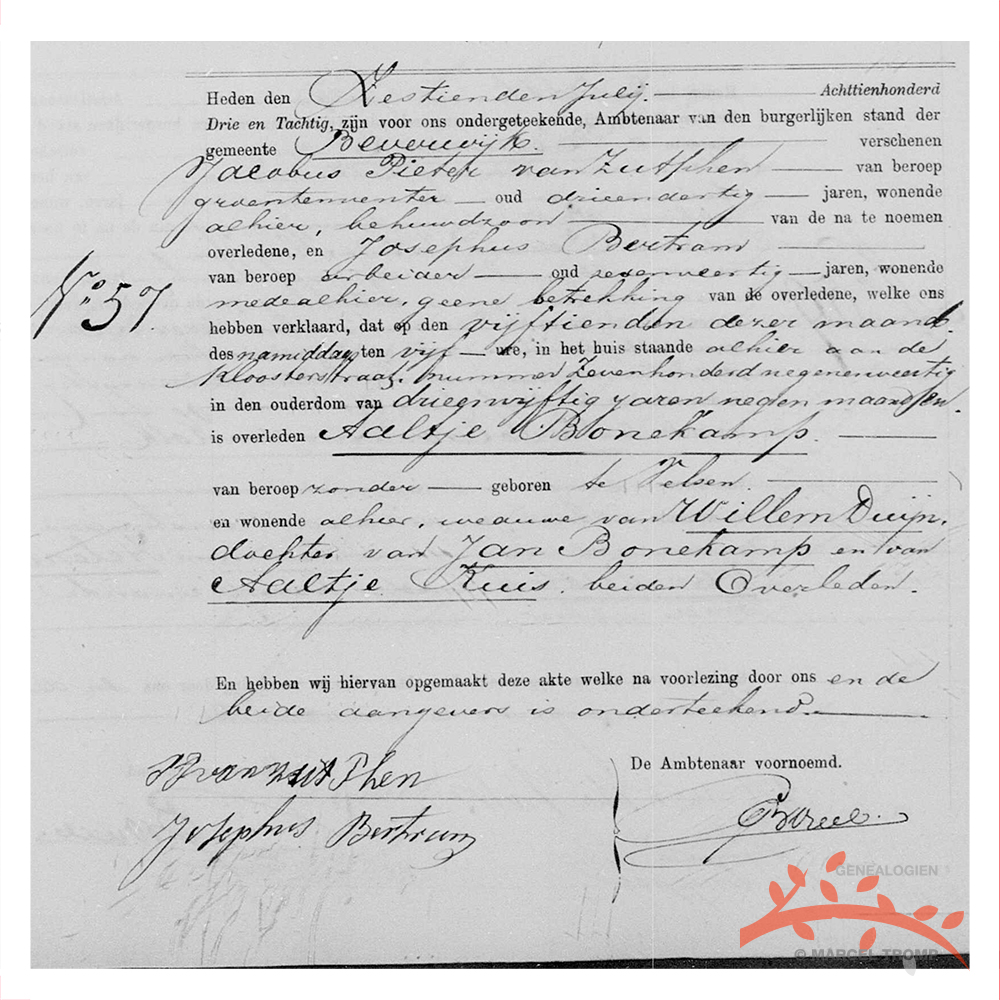 Heden den Zestienden Julij. Achttienhonderd
Drie en Tachtig, zijn voor ons ondergeteekende, Ambtenaar van den burgerlijken stand der
gemeente Beverwijk. verschenen
Jacobus Pieter van Zutphen van beroep
groentenventer oud drieendertig jaren, wonende
alhier, behuwdzoon van de na te noemen
overledene, en Josephus Bertram
van beroep arbeider oud zevenveertig jaren, wonende
medealhier, geene betrekking van de overledene, welke ons
No. 57.
hebben verklaard, dat op den vijftienden dezer maand
des namiddags ten vijf ure, in het huis staande alhier aan de
Kloosterstraat, nummer Zevenhonderd negenenveertig
in den ouderdom van drieenvijftig jaren negen maanden.
is overleden Aaltje Bonekamp.
van beroep zonder geboren te Velsen.
en wonende alhier, weduwe van Willem Duijn,
dochter van Jan Bonekamp en van
Aaltje Kuis. beiden Overleden.
En hebben wij hiervan opgemaakt deze akte welke na voorlezing door ons en de
beide aangevers is onderteekend.
De Ambtenaar voornoemd.
JP van Zutphen
Josephus Bertram
GENEALOGIEN
© MARCEL TROMP